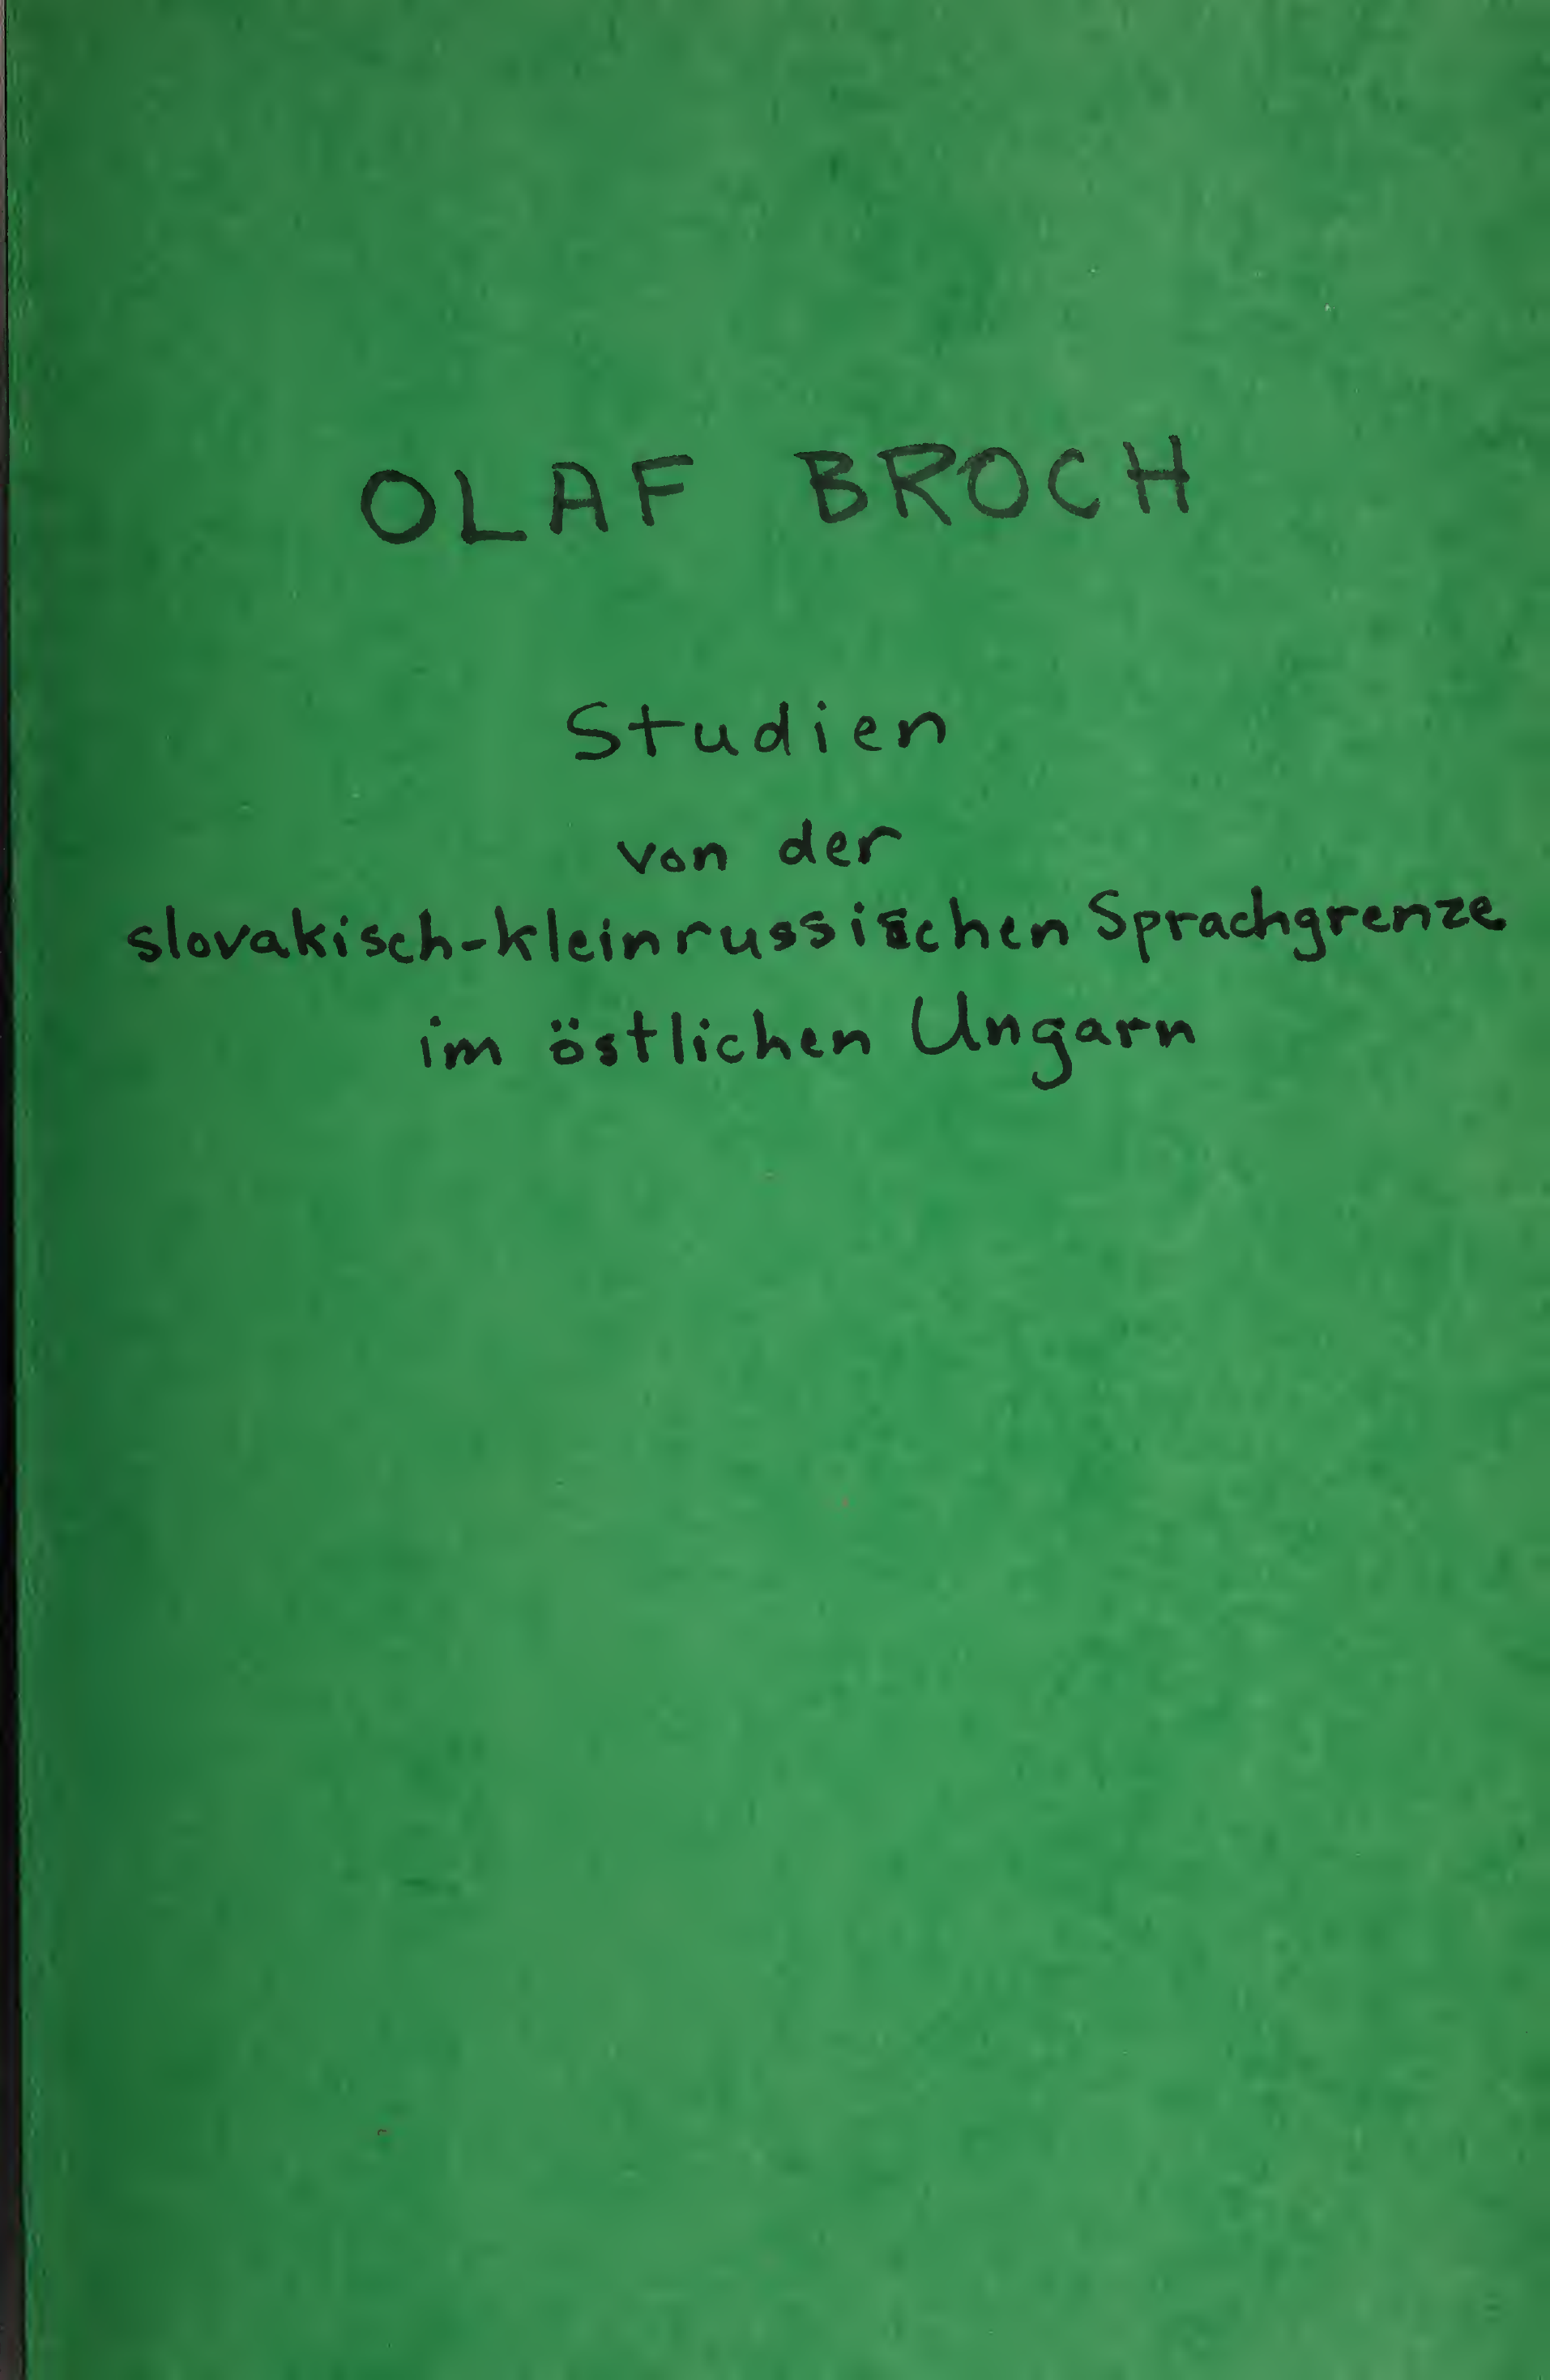 OLAF BROCH
Studien
von der
slovakisch-kleinrussischen Sprachgrenze
im östlichen Ungarn